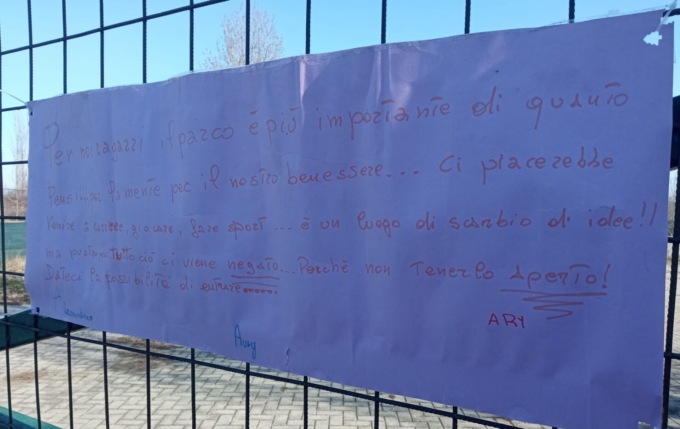 Per noi ragazzi il parco è più importante di quanto
Pensi... la mente per il nostro benessere... Ci piacerebbe
Venire a correre, giocare, fare sport... è un luogo di scambio di idee!!
ma purtroppo tutto ciò ci viene negato... Perchè non Tenerlo Aperto!
Dateci la possibilità di entrare......
Aury
ARY